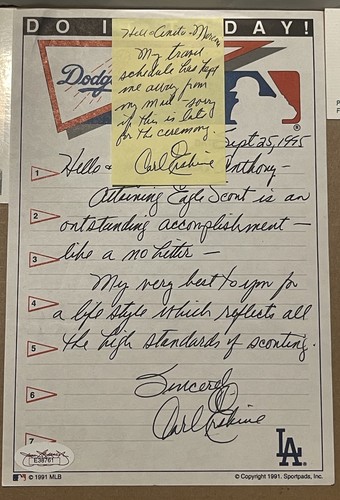 DO I DAY!
Hello Anita + Marcus
My travel
schedule has kept
me away from
my mail - sorry
if this is late
for the ceremony.
Carl Erskine
Dodg
Sept 25, 1995
1
Hello Anthony -
Attaining Eagle Scout is an
2
outstanding accomplishment -
3
like a no hitter -
My very best to you for
4
a life style which reflects all
5
the high standards of scouting.
Sincerely
6
Carl Erskine
7
E38761
LA
© 1991 MLB
© Copyright 1991. Sportpads, Inc.